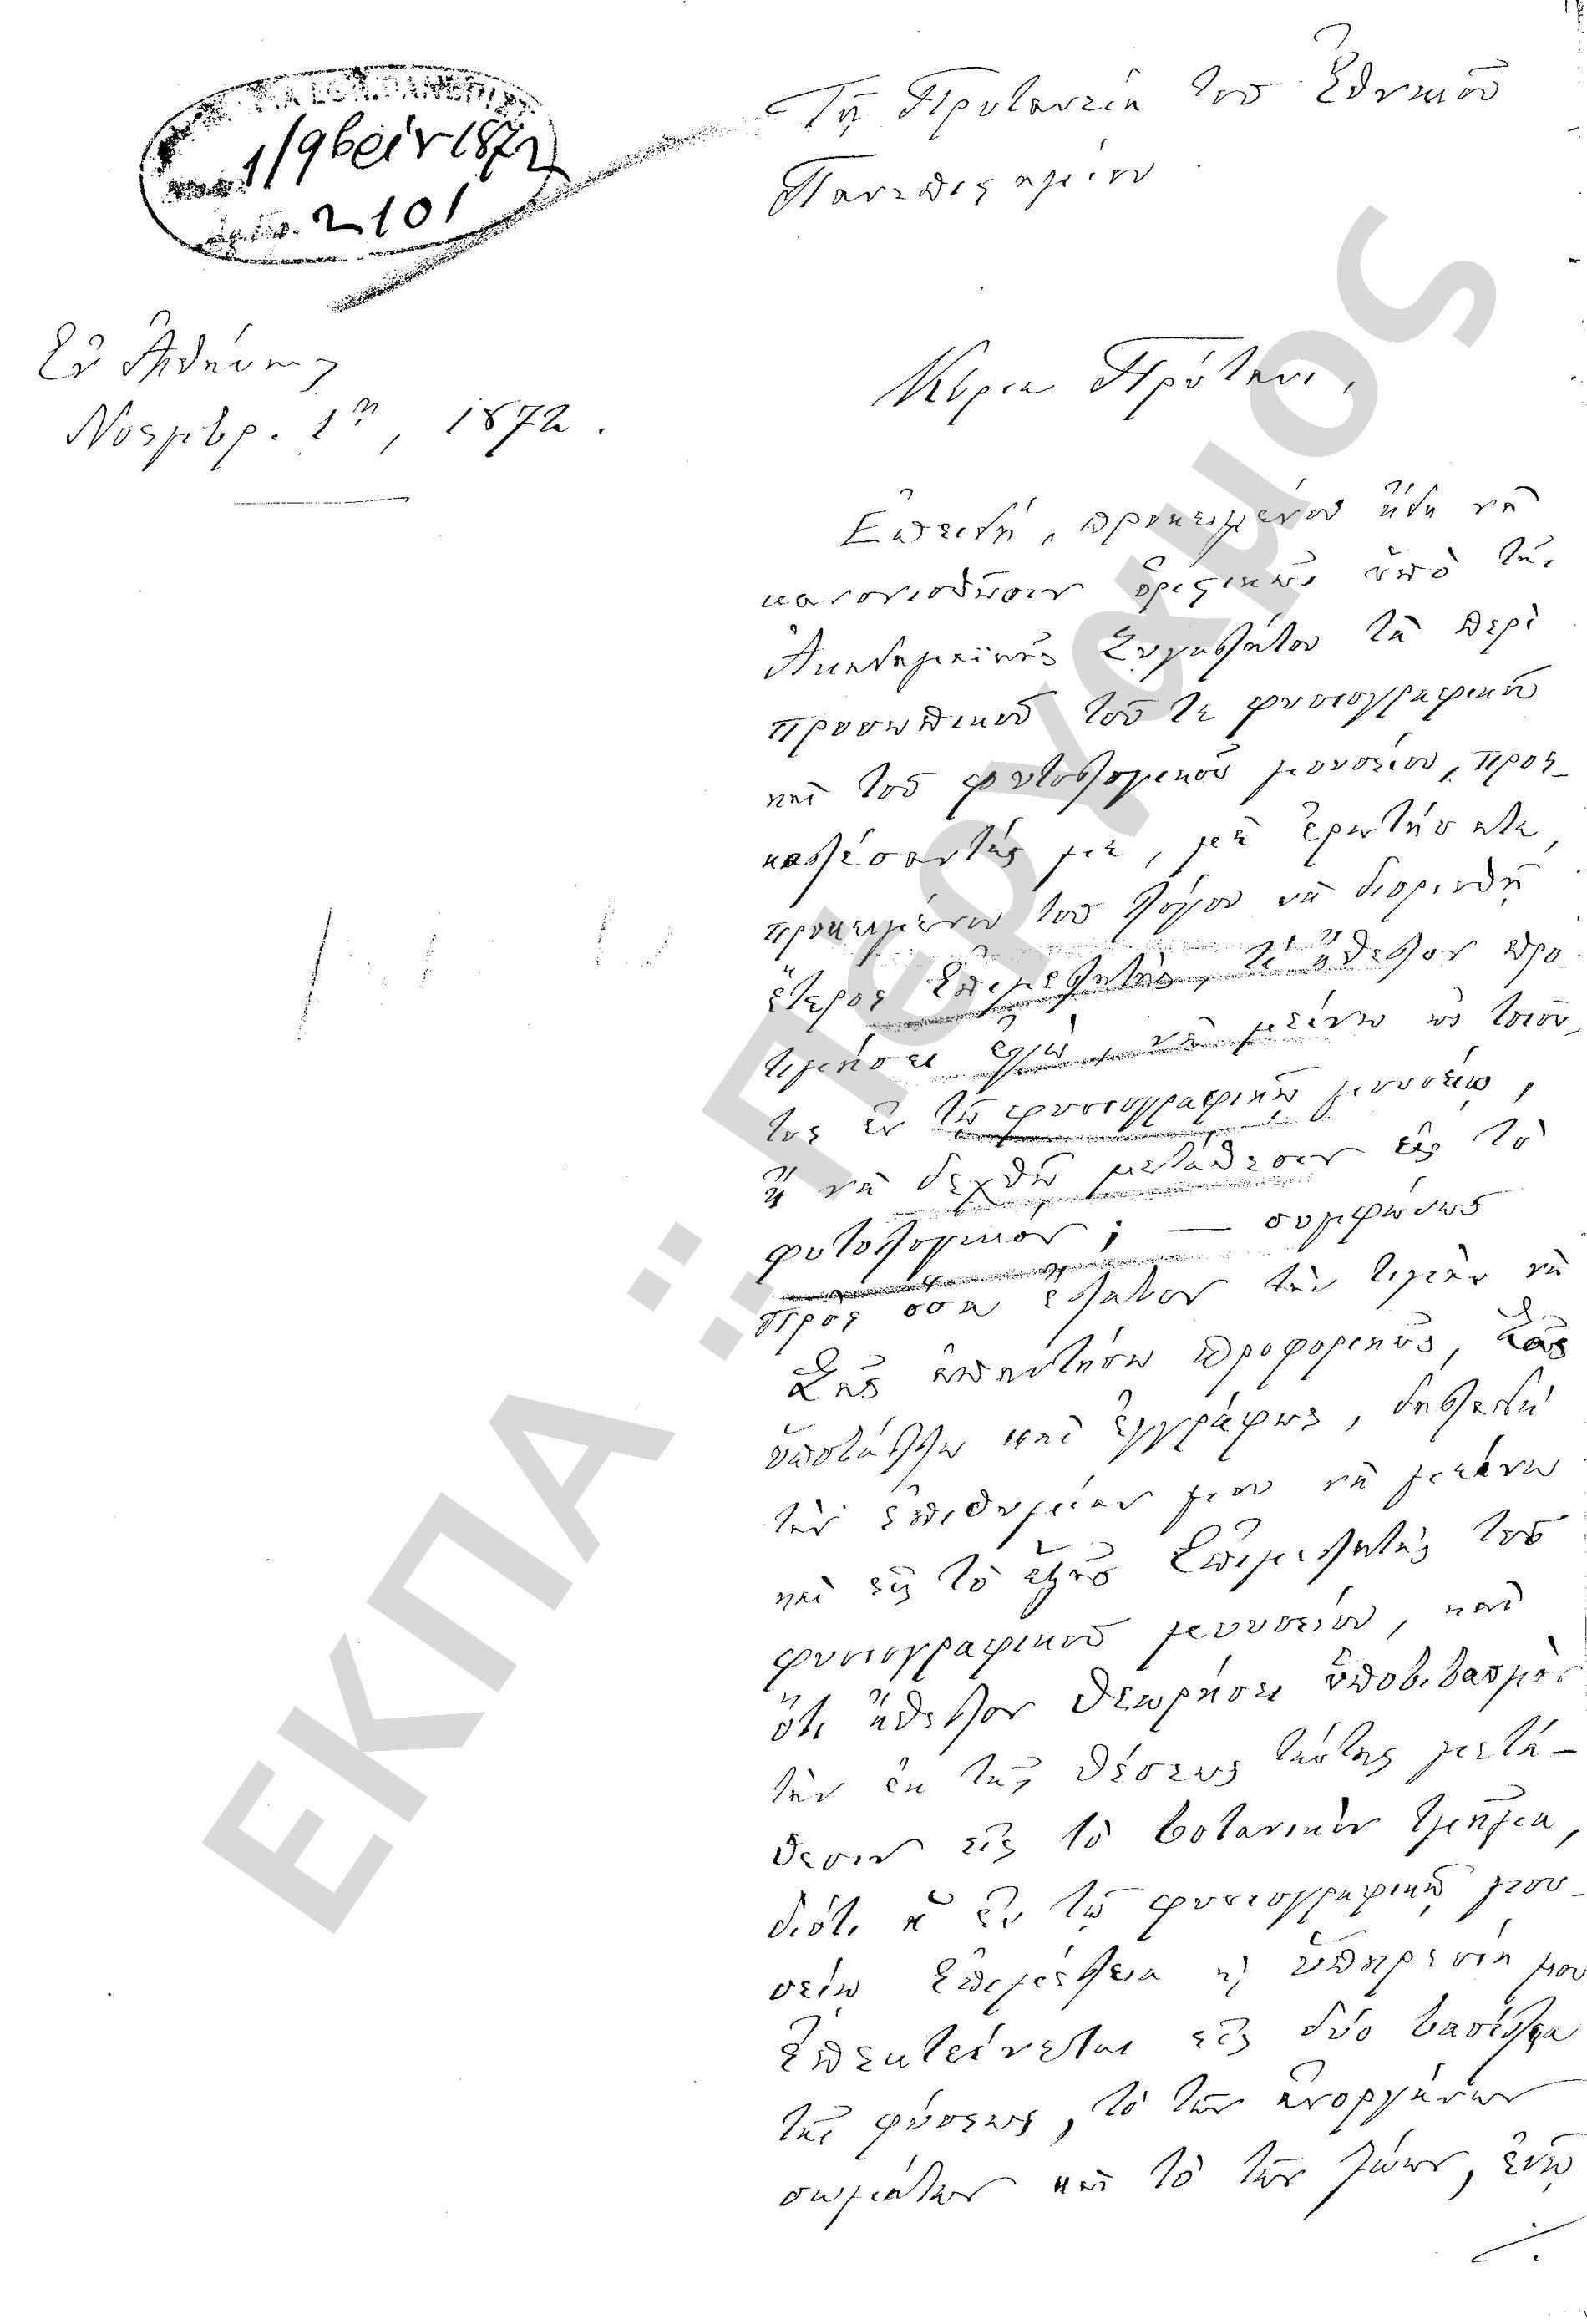 Τῇ Πρυτανείᾳ τοῦ Ἐθνικοῦ
Πανεπιστημίου.
1/9βρίου 1872
2101
Ἐν Ἀθήναις
Νοεμβρ. 1ῃ, 1872.
Κύριε Πρύτανι,
Ἐπειδή, προκειμένου ἤδη νὰ
κανονισθῶσιν ὁριστικῶς ὑπὸ τῆς
Ἀκαδημαϊκῆς Συγκλήτου τὰ περὶ
προσωπικοῦ τοῦ τε φυσιογραφικοῦ
καὶ τοῦ φυτολογικοῦ μουσείου, προς-
καλέσαντές με, μὲ ἐρωτήσατε,
προκειμένου τοῦ λόγου νὰ διορισθῇ
ἕτερος Ἐπιμελητής, τί ἤθελον προ-
τιμήσει ἐγώ, νὰ μείνω ὡς τοιοῦ-
τος ἐν τῷ φυσιογραφικῷ μουσείῳ,
ἢ νὰ δεχθῶ μετάθεσιν εἰς τὸ
φυτολογικόν; — συμφώνως
πρὸς ὅσα ἔλαβον τὴν τιμὴν νὰ
Σᾶς ἀπαντήσω προφορικῶς, Σᾶς
ὑποβάλλω καὶ ἐγγράφως, δηλαδὴ
τὴν ἐπιθυμίαν μου νὰ μείνω
καὶ εἰς τὸ ἑξῆς Ἐπιμελητὴς τοῦ
φυσιογραφικοῦ μουσείου, καὶ
ὅτι ἤθελον θεωρήσει ὑποβιβασμὸν
τὴν ἐκ τῆς θέσεως ταύτης μετά-
θεσιν εἰς τὸ βοτανικὸν τμῆμα,
διότι ἡ ἐν τῷ φυσιογραφικῷ μου-
σείῳ ἐπιμέλεια κ̀ ὑπηρεσία μου
ἐπεκτείνεται εἰς δύο βασίλεια
τῆς φύσεως, τὸ τῶν ἀνοργάνων
σωμάτων καὶ τὸ τῶν ζώων, ἐνῷ
./.
ΕΚΠΑ : Πέργαμος